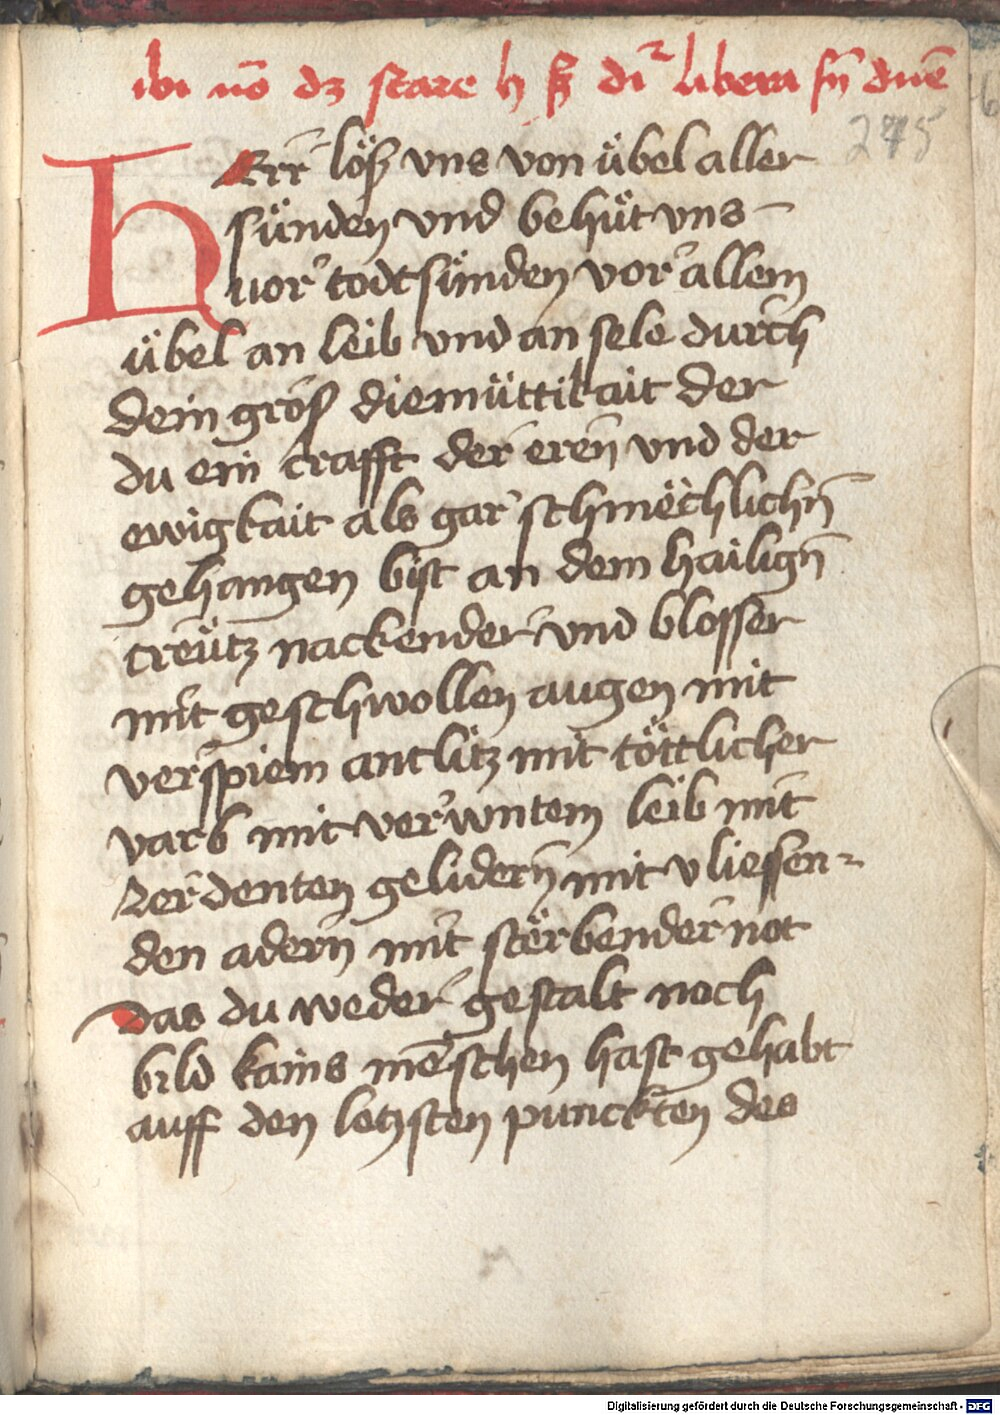 ibi nō dz stare h ſꝫ dr̄ libera ſn̄ dnē
275
HErr löß vns von übel aller
sünden vnd behüt vns
vor todtsünden vor allem
übel an leib vnd an sele durch
dein groß diemüttikait der
du ein crafft der eren vnd der
ewigkait als gar schmëchlichn̄
gehangen bist an dem hailign̄
creütz nackender vnd blosser
mit geschwollen augen mit
verspiem antlitz mit töttlicher
varb mit verwntem leib mit
zerdenten gelidern mit vliessen-
den adern mit stërbender not
Das du weder gestalt noch
bild kains mēschen hast gehabt
auff den letzsten punckten des
Digitalisierung gefördert durch die Deutsche Forschungsgemeinschaft - DFG